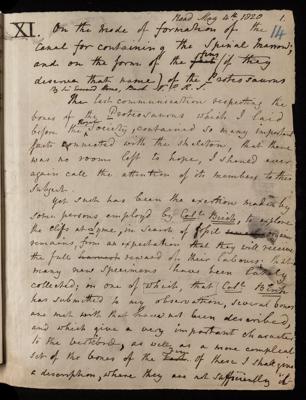 Read May 4th 1820
1.
XI.
14
On the mode of formation of the
Canal for containing the Spinal Marrow;
and on the form of the fins (if they
deserve that name) of the Protosaurus
By Sir Everard Home, Bart. V.P.R.S.
The last communication respecting the
bones of the Protosaurus which I laid
before the Royal Society, contained so many important
facts connected with the skeleton, that there
was no room left to hope, I should ever
again call the attention of its members to this
subject.
Yet such has been the exertion made by
some persons employed by Coll. Birch, to explore
the cliffs at Lyme, in search of fossil organic
remains, from an expectation that they will receive
the full reward of their labours; that
many new specimens have been lately
collected; in one of which, that Coll. Birch
has submitted to my observation, several bones
are met with that have not been described,
and which give a very important character
to the vertebræ, as well as a more compleat
set of the bones of the fins. Of these I shall give
a description, where they are not sufficiently